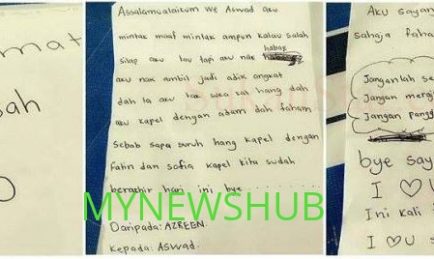 mat
sah
O
Assalamualaikum We Aswad aku
mintak maaf mintak ampun kalau salah
silap aku kau tapi aku nak habaq
aku nak ambil jadi adik angkat
dah la aku tak suka kat hang dah
aku kapel dengan adam dah faham
sebab sapa suruh hang kapel dengan
Fatin dan sofia kapel kita sudah
berakhir hari ini bye
Daripada: AZREEN.
Kepada: Aswad.
MYNEWSHUB
Aku sayang
sahaja faha
Janganlah se
Jangan
Jangan
bye say
I ♡ U
Ini kali
I ♡ U s